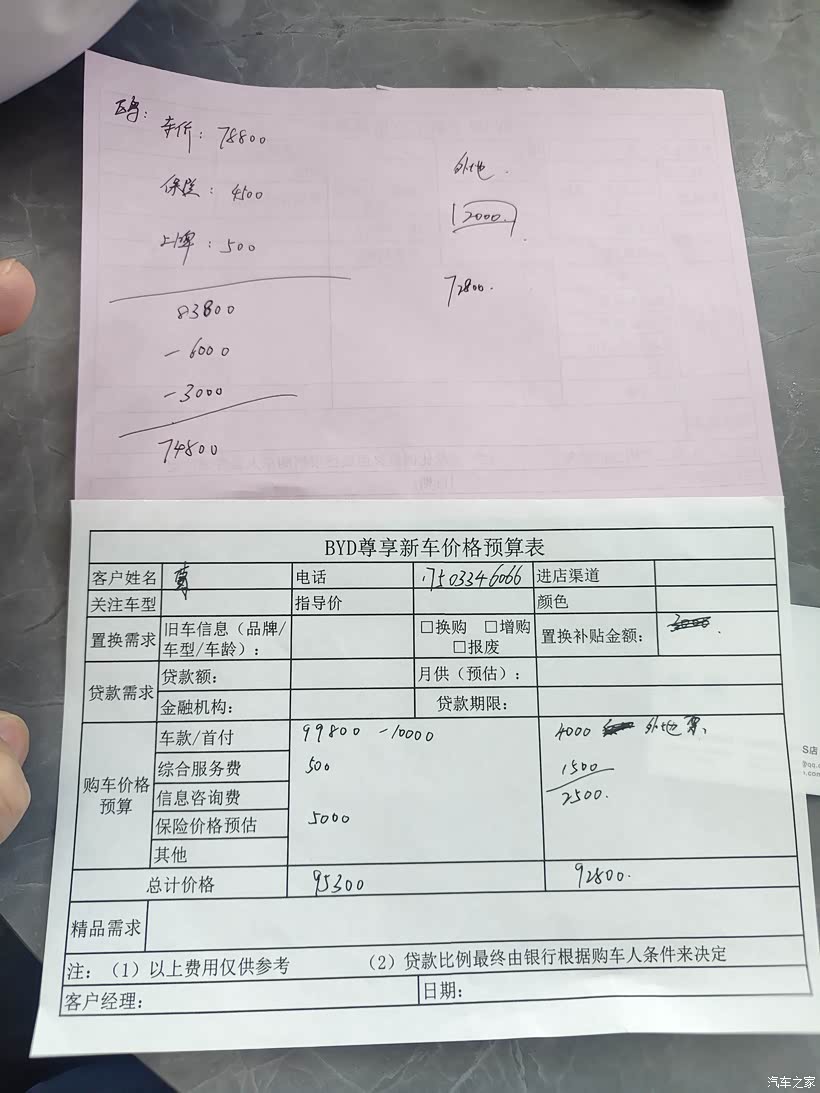 车价：78800
外地.
保险：4500
12000.
上牌：500
72800.
83800
-6000
-3000
74800
BYD尊享新车价格预算表
客户姓名 电话 17503346066 进店渠道
关注车型 指导价 颜色
置换需求 旧车信息（品牌/车型/车龄）： □换购 □增购 □报废 置换补贴金额： 3000
贷款需求 贷款额： 月供（预估）：
金融机构： 贷款期限：
购车价格预算 车款/首付 99800 -10000 4000 外地票、
综合服务费 500 1500
信息咨询费 2500.
保险价格预估 5000
其他
总计价格 95300 92800.
精品需求
注：（1）以上费用仅供参考 （2）贷款比例最终由银行根据购车人条件来决定
客户经理： 日期：
S店
汽车之家